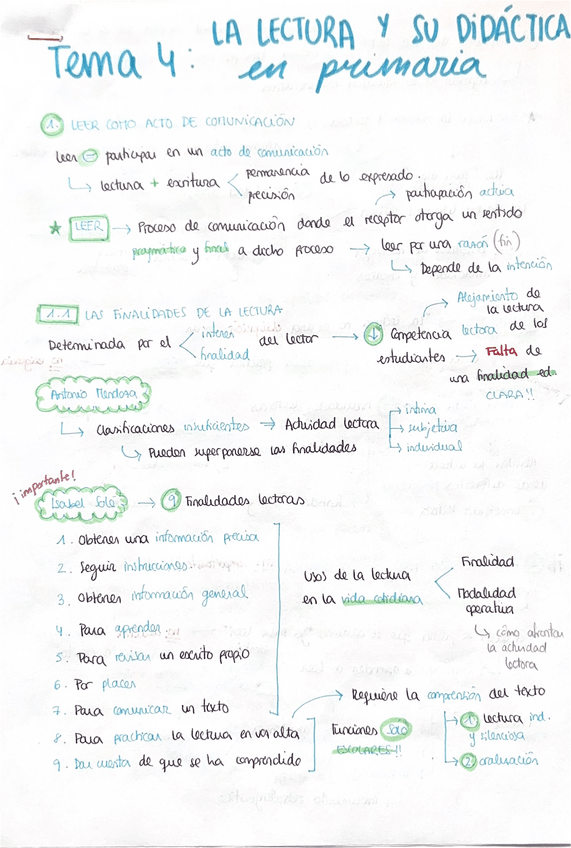 LA LECTURA Y SU DIDÁCTICA
Tema 4: en primaria
1. LEER COMO ACTO DE COMUNICACIÓN
Leer participar en un acto de comunicación
lectura + escritura
permanencia de lo expresado.
precisión
→ participación activa
★ LEER → Proceso de comunicación donde el receptor otorga un sentido
pragmático y final a dicho proceso → leer por una razón (fin)
Depende de la intención
1.1 LAS FINALIDADES DE LA LECTURA
Determinada por el interés finalidad del lector → ↓ Competencia lectora de los
estudiantes → Falta de
una finalidad ed.
CLARA!!
Alejamiento de
la lectura
Antonio Mendoza
Clasificaciones insuficientes → Actividad lectora
→ íntima
→ subjetiva
→ individual
Pueden superponerse las finalidades
¡importante!
Isabel Solé → 9 Finalidades lectoras
1. Obtener una información precisa
2. Seguir instrucciones.
3. Obtener información general
4. Para aprender.
5. Para revisar un escrito propio
6. Por placer
7. Para comunicar un texto
8. Para practicar la lectura en voz alta
9. Dar cuenta de que se ha comprendido
Usos de la lectura
en la vida cotidiana
Finalidad
Modalidad
operativa
cómo afrontar
la actividad
lectora
→ Requiere la comprensión del texto
Funciones solo
ESCOLARES!!
1 Lectura ind.
y silenciosa
2 oralización